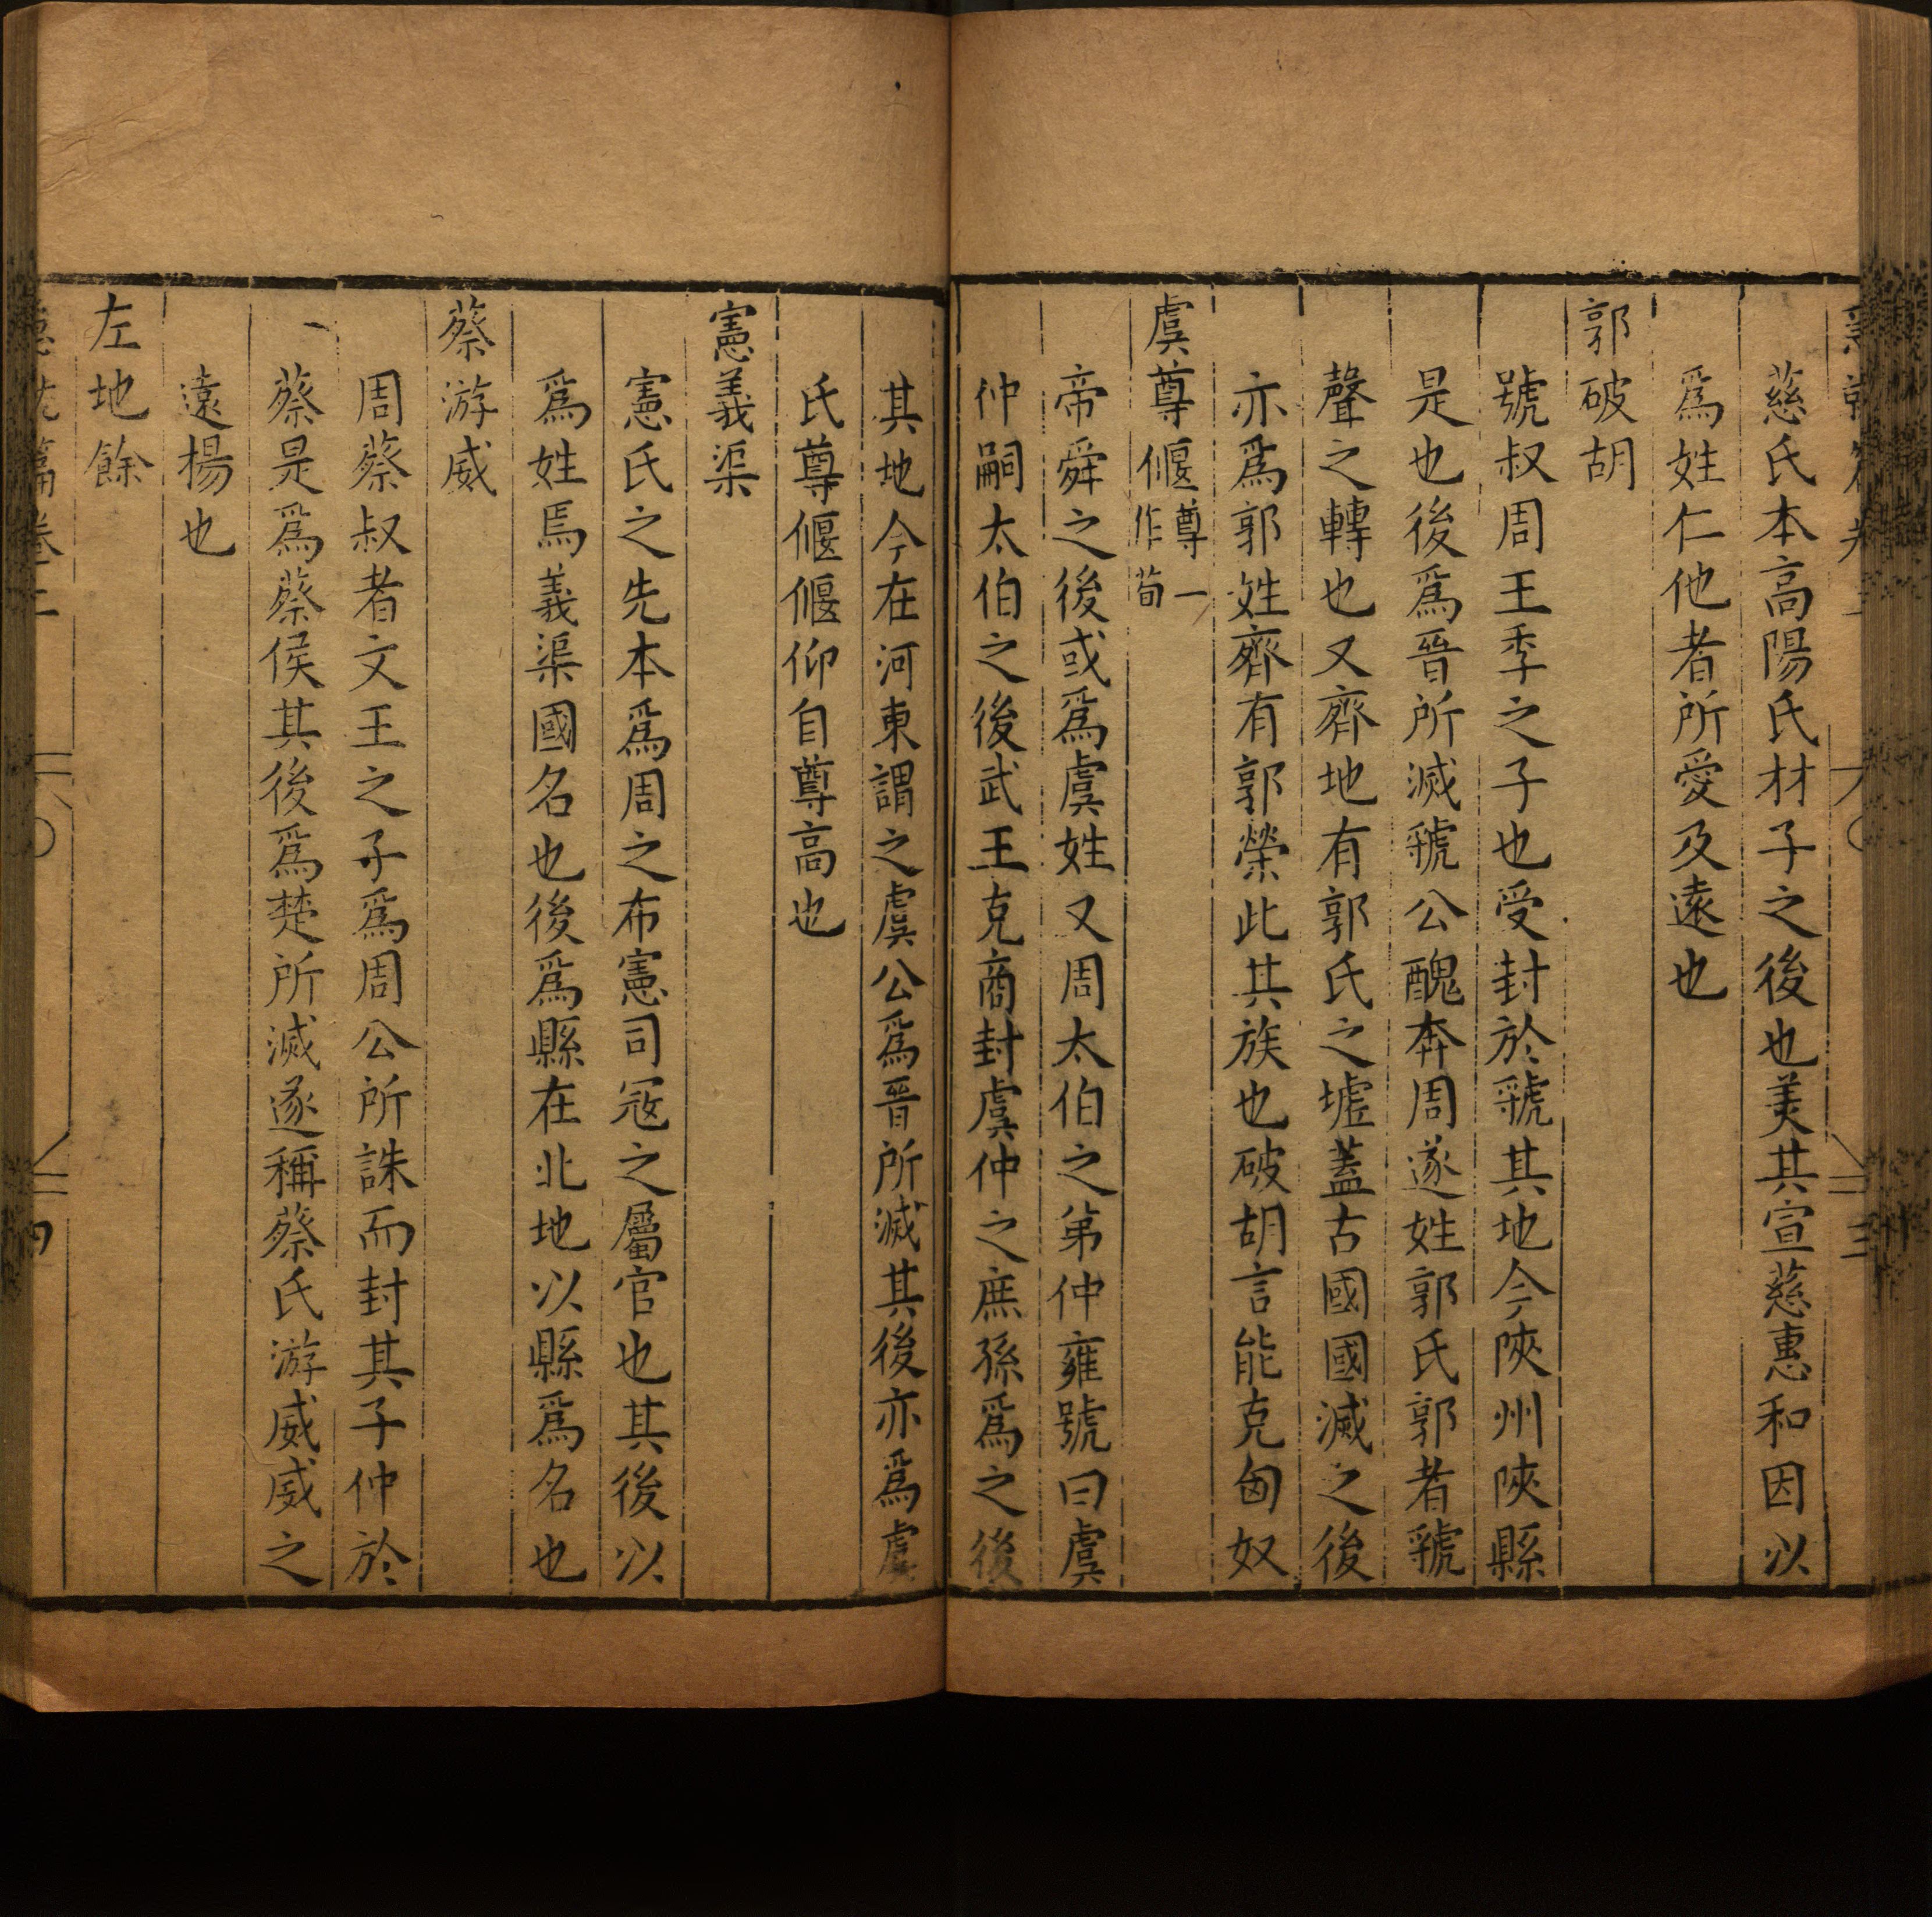 慈氏本高陽氏材子之後也美其宣慈惠和因以
爲姓仁他者所愛及遠也
郭破胡
號叔周王季之子也受封於虢其地今陝州陝縣
是也後爲晉所滅虢公醜奔周遂姓郭氏郭者虢
聲之轉也又齊地有郭氏之墟蓋古國國滅之後
亦爲郭姓齊有郭榮此其族也破胡言能克匈奴
虞尊偃尊一作荀
帝舜之後或爲虞姓又周太伯之第仲雍號曰虞
仲嗣太伯之後武王克商封虞仲之庶孫爲之後
其地今在河東謂之虞公爲晉所滅其後亦爲虞
氏尊偃偃仰自尊高也
憲義渠
憲氏之先本爲周之布憲司寇之屬官也其後以
爲姓焉義渠國名也後爲縣在北地以縣爲名也
蔡游威
周蔡叔者文王之子爲周公所誅而封其子仲於
蔡是爲蔡侯其後爲楚所滅遂稱蔡氏游威威之
遠揚也
左地餘